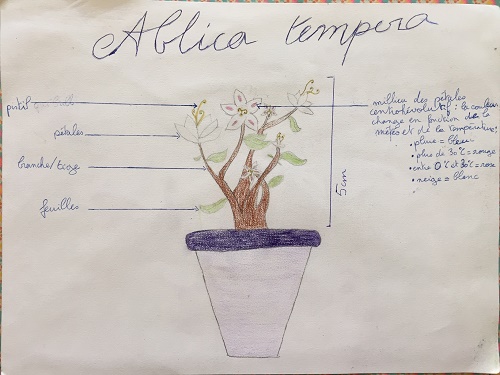 Ablica tempera
pistil
pétales
branche/tige
feuilles
5cm
millieu des pétales
: la couleur
change en fonction de la
météo et de la température:
• pluie = bleu
• plus de 30°C = rouge
• entre 0°C et 30°C = rose
• neige = blanc